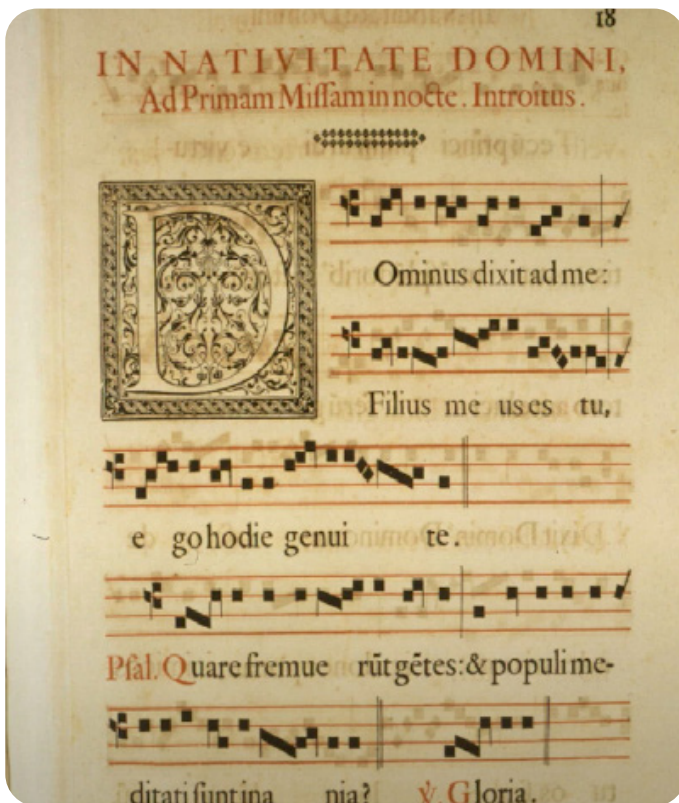 18
IN NATIVITATE DOMINI,
Ad Primam Missam in nocte. Introitus.
DOminus dixit ad me:
Filius me us es tu,
e go hodie genui te.
Psal. Quare fremue rūt gētes: & populi me-
ditati sunt ina nia? ℣. Gloria.